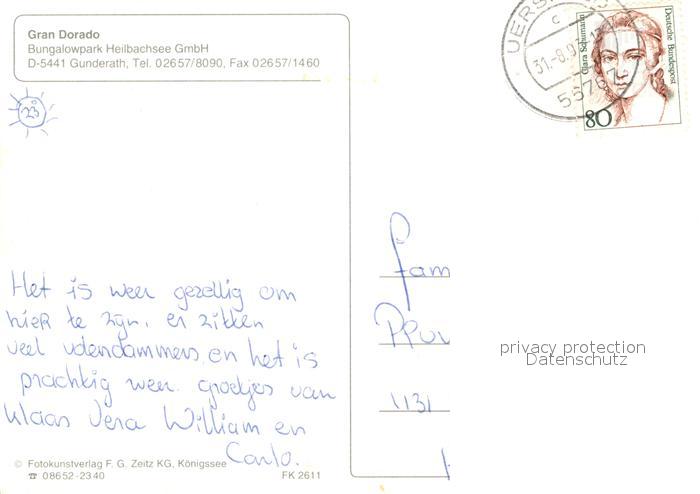 Gran Dorado
Bungalowpark Heilbachsee GmbH
D-5441 Gunderath, Tel. 02657/8090, Fax 02657/1460
23
Het is weer gezellig om
hier te zijn. er zitten
veel vdendammers en het is
prachtig weer. groetjes van
Klaas Vera William en
Carlo.
© Fotokunstverlag F. G. Zeitz KG, Königssee
☎ 08652-2340 FK 2611
UERS
c
31.-8.9
5576
Clara Schumann
Deutsche Bundespost
80
fam
1131
privacy protection
Datenschutz